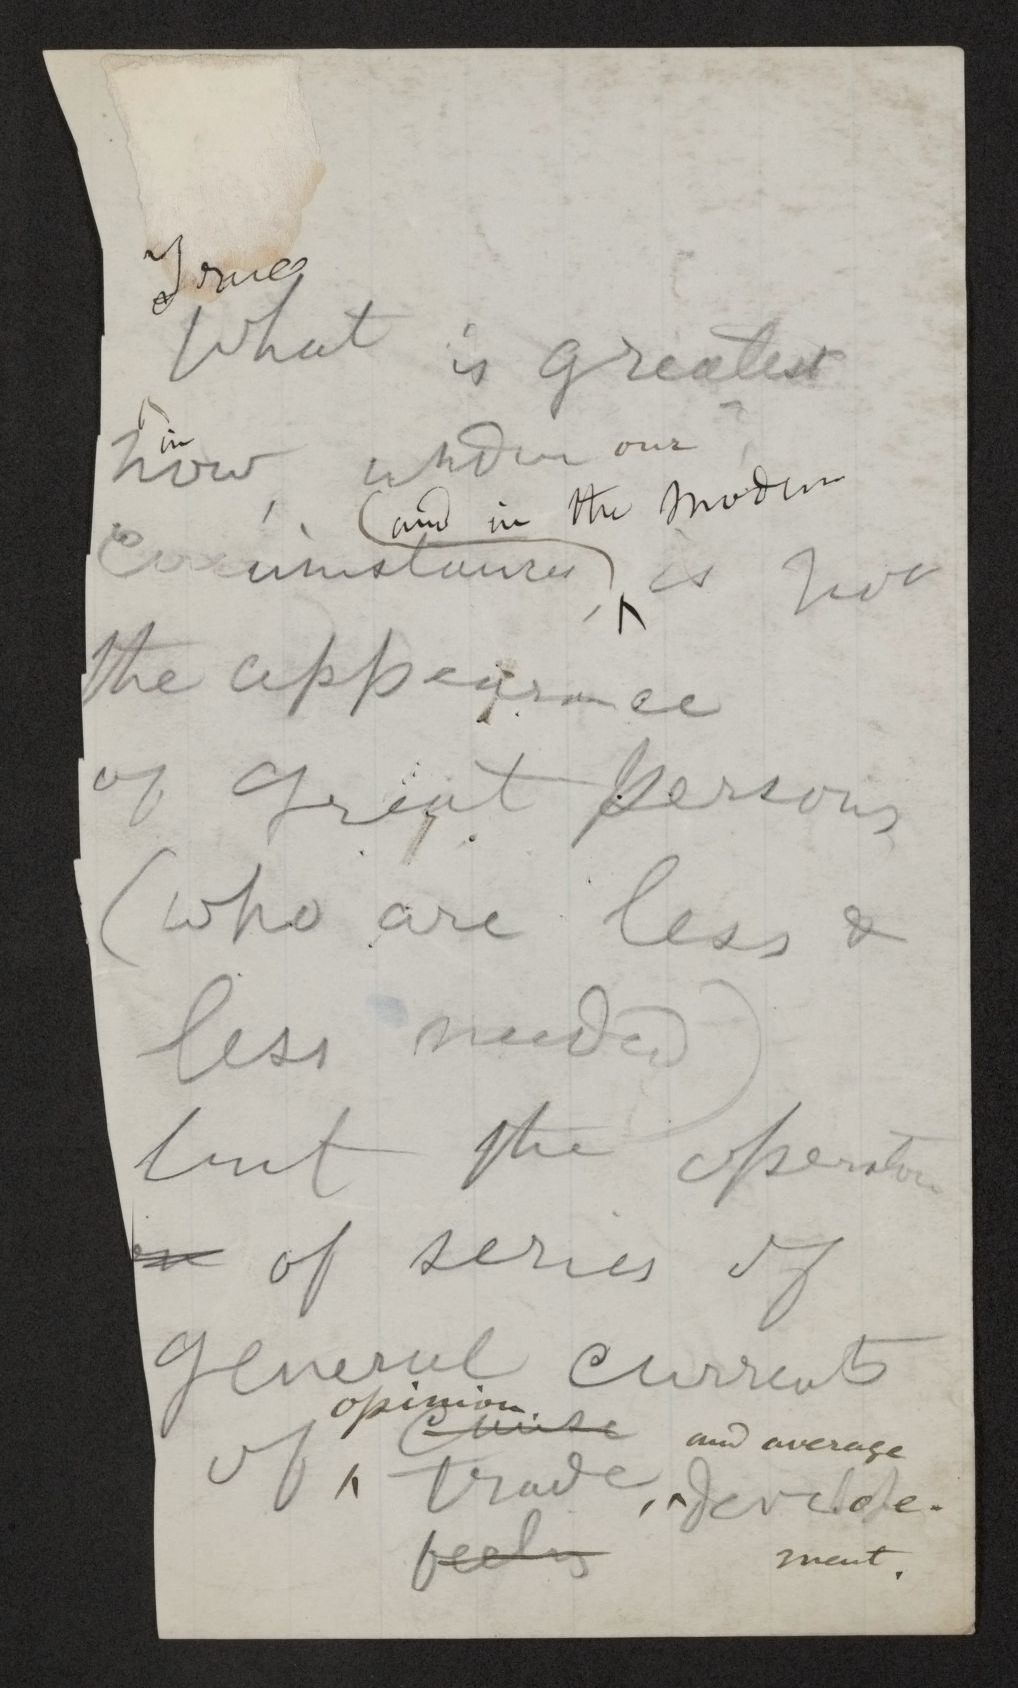 True
What is greatest
in
now, under our
(and in the modern
circumstances) is not
the appearance
of great persons
(who are less &
less needed)
but the operation
of series of
general currents
opinion,
of trade, and average
develope-
ment.